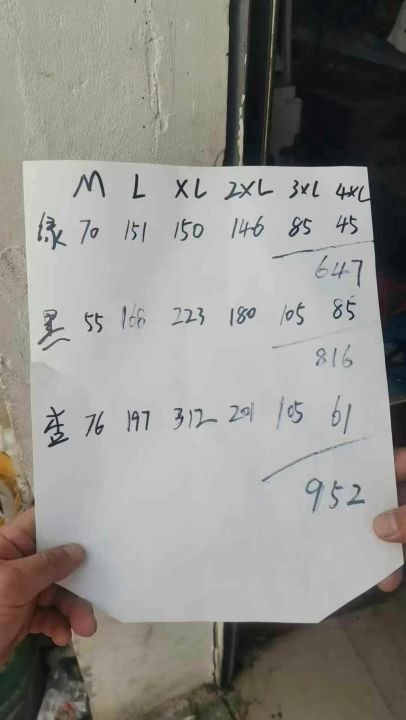 M L XL 2XL 3XL 4XL
绿 70 151 150 146 85 45
647
黑 55 168 223 180 105 85
816
杏 76 197 312 201 105 61
952